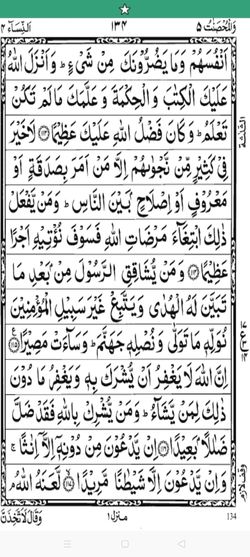 وَالْمُحْصَنٰتُ ۵ ۱۳۴ اَلنِّسَآء ۴
اَنْفُسَهُمْ وَمَا يَضُرُّوْنَكَ مِنْ شَىْءٍ ؕ وَاَنْزَلَ اللّٰهُ
عَلَيْكَ الْكِتٰبَ وَالْحِكْمَةَ وَعَلَّمَكَ مَا لَمْ تَكُنْ
تَعْلَمُ ؕ وَكَانَ فَضْلُ اللّٰهِ عَلَيْكَ عَظِيْمًا ﴿۱۱۳﴾ لَا خَيْرَ
فِىْ كَثِيْرٍ مِّنْ نَّجْوٰىهُمْ اِلَّا مَنْ اَمَرَ بِصَدَقَةٍ اَوْ
مَعْرُوْفٍ اَوْ اِصْلَاحٍۭ بَيْنَ النَّاسِ ؕ وَمَنْ يَّفْعَلْ
ذٰلِكَ ابْتِغَآءَ مَرْضَاتِ اللّٰهِ فَسَوْفَ نُؤْتِيْهِ اَجْرًا
عَظِيْمًا ﴿۱۱۴﴾ وَمَنْ يُّشَاقِقِ الرَّسُوْلَ مِنْۢ بَعْدِ مَا
تَبَيَّنَ لَهُ الْهُدٰى وَيَتَّبِعْ غَيْرَ سَبِيْلِ الْمُؤْمِنِيْنَ
نُوَلِّهٖ مَا تَوَلّٰى وَنُصْلِهٖ جَهَنَّمَ ؕ وَسَآءَتْ مَصِيْرًا ﴿۱۱۵﴾
اِنَّ اللّٰهَ لَا يَغْفِرُ اَنْ يُّشْرَكَ بِهٖ وَيَغْفِرُ مَا دُوْنَ
ذٰلِكَ لِمَنْ يَّشَآءُ ؕ وَمَنْ يُّشْرِكْ بِاللّٰهِ فَقَدْ ضَلَّ
ضَلٰلًاۢ بَعِيْدًا ﴿۱۱۶﴾ اِنْ يَّدْعُوْنَ مِنْ دُوْنِهٖۤ اِلَّاۤ اِنٰثًا ۚ
وَاِنْ يَّدْعُوْنَ اِلَّا شَيْطٰنًا مَّرِيْدًا ﴿۱۱۷﴾ لَّعَنَهُ اللّٰهُ ۘ
وَقَالَ لَاَتَّخِذَنَّ
منزل ۱
134